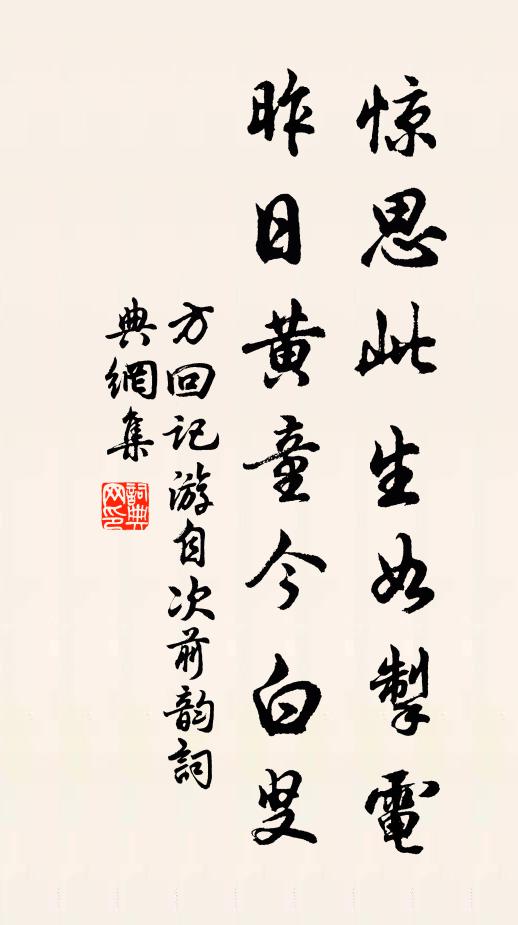 惊思此生如掣電
昨日黄童今白叟
方回記游自次前韵詞
典網集
詞典网印